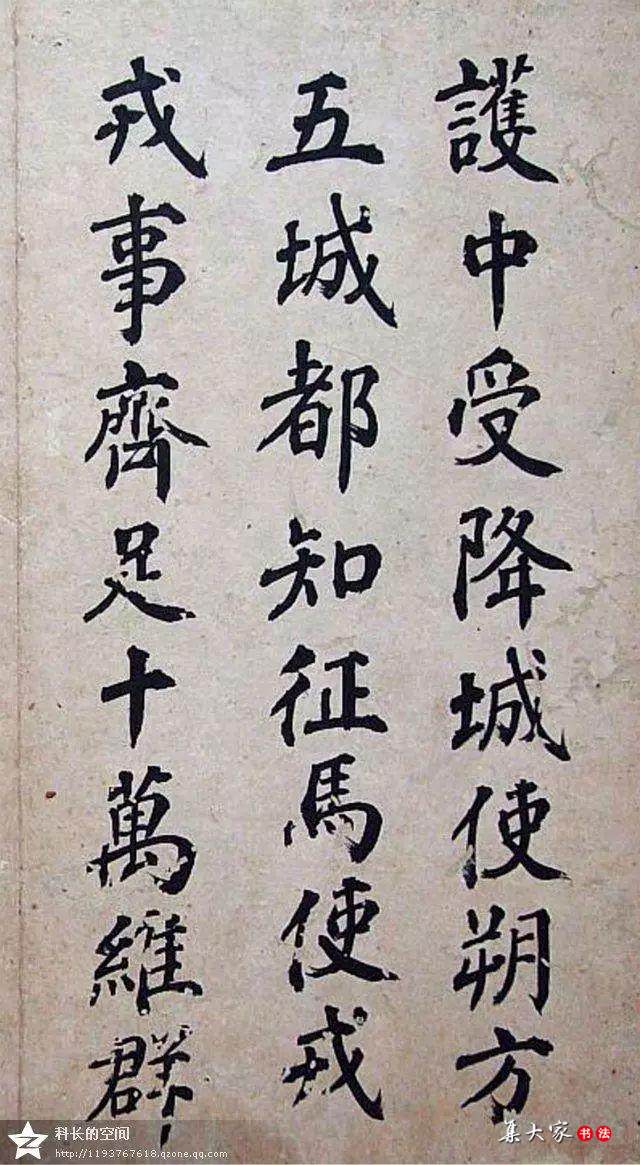 護中受降城使朔方
五城都知征馬使戎
戎事齊足十萬維群
科长的空间
http://1193767618.qzone.qq.com
集大家书法